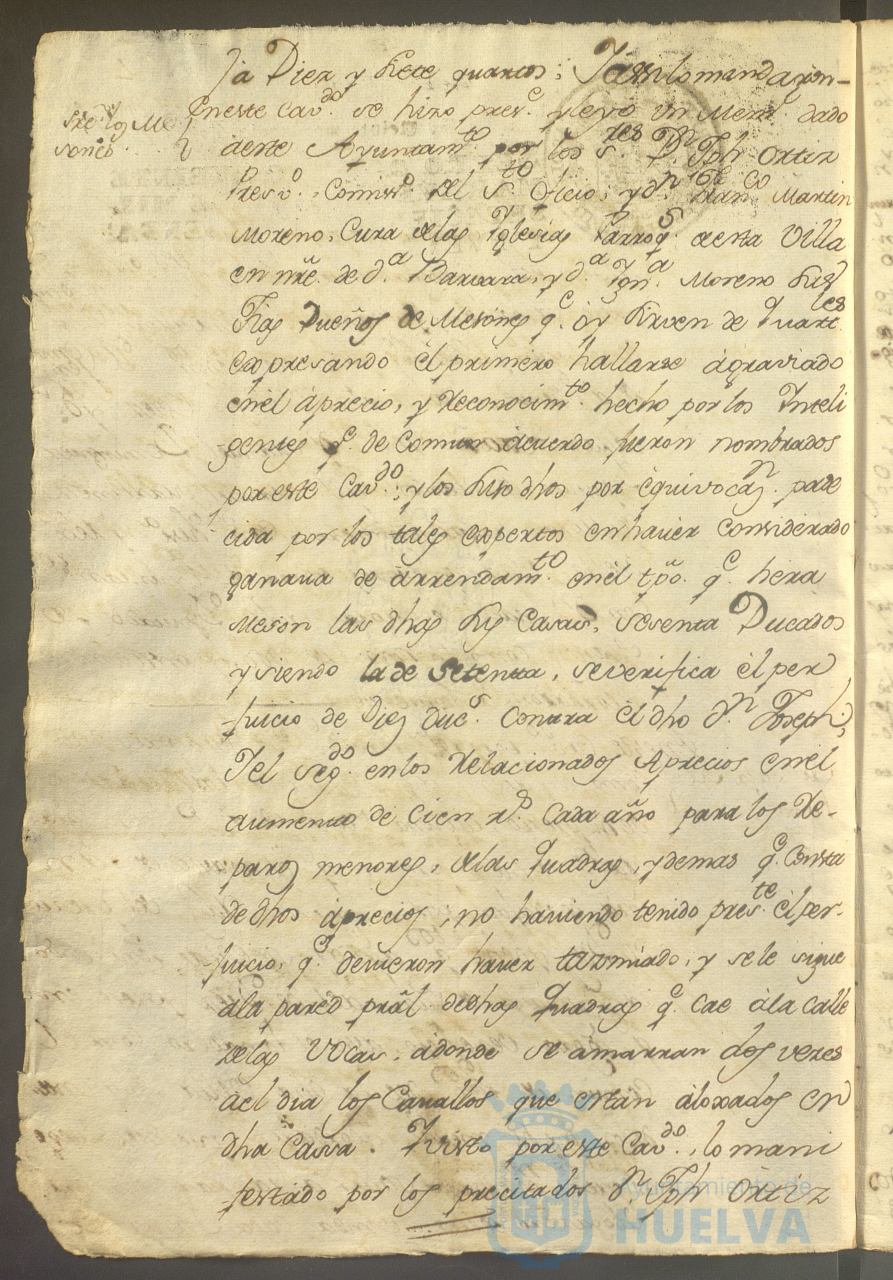 ja Diez y siete quartos; Y assi lo mandaron-
Sre. los Me
sones
En este Cavdo. se hizo presc. y leyó un Meml. dado
a este Ayuntamto. por los Sres. Dn. Jph Ortiz
Presvo. Comisro. del Sto. Oficio; y dn. Franco Martin
Moreno, Cura de las Iglesias Parroqs. de esta Villa
en nre. de da. Barvara, y da. Moreno sus
Tias Dueños de Mesones qe. oy sirven de Quarteles
expresando el primero hallarse agraviado
en el aprecio, y reconocimto. hecho por los Inteli
gentes qe. de Comun acuerdo fueron nombrados
por este Cavdo.; y los suso dhos por equivocazn. pade
cida por los tales expertos en haver considerado
ganava de arrendamto. en el tpo. qe. hera
Meson las dhas sus Casas, sesenta Ducados
y siendo la de setenta, se verifica el per
juicio de Diez ducs. contra el dho Dn. Joseph;
Y el segdo. en los relacionados Aprecios en el
aumento de cien rs. cada año para los Re-
paros menores, de las quadras, y demas qe. consta
de dhos aprecios, no haviendo tenido preste. el per-
juicio, qe. devieron haver tazmiado, y se le sigue
a la pared pral. de dhas quadras qe. cae a la calle
de las Vocas, adonde se amarran dos vezes
del dia los Cavallos que estan aloxados en
dha Cassa. Y visto por este Cavdo., lo mani
festado por los precitados Dn. Jph Ortiz
Ayuntamiento de
HUELVA